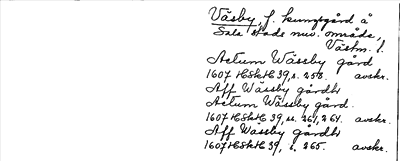 Väsby, f. kungsgård å
Sala stads nuv. område,
Västm. l.
Actum Wässby gård
1607 HSkH 39, s. 258. avskr.
Aff Wässby gårdh
Actum Wässby gård.
1607 HSkH 39, ss. 261, 264. avskr.
Aff Wässby gårdh
1607 HSkH 39, s. 265. avskr.